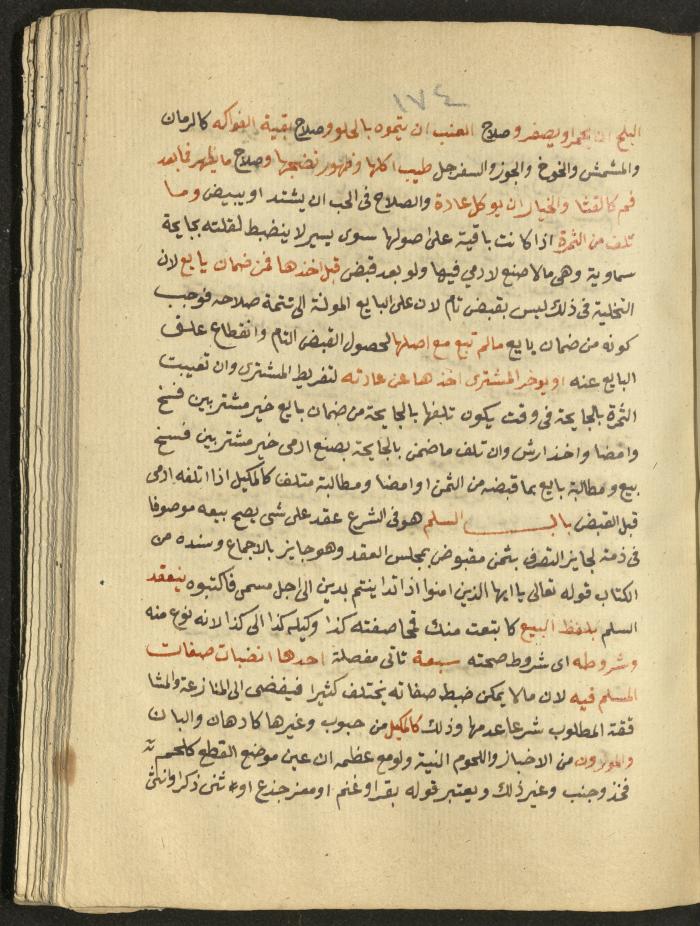 ١٧٤
البلح ان يحمر او يصفر وصلاح العنب ان يتموه بالحلو وصلاح بقية الفواكه كالرمان
والمشمش والخوخ والجوز والسفرجل طيب اكلها وظهور نضجها وصلاح ما يظهر فما بعد
فم كالقثا والخيار ان يوكل عادة والصلاح فى الحب ان يشتد او يبيض وما
تلف من الثمرة اذا كانت باقية على اصولها سوى يسير لا ينضبط لقلته بجايحة
سماوية وهى ما لا صنع لادمي فيها ولو بعد قبض قبل اخذها فمن ضمان بايع لان
التخلية فى ذلك ليس بقبض تام لان على البايع المونة الى تتمة صلاحه فوجب
كونه من ضمان بايع ما لم تبع مع اصلها لحصول القبض التام وانقطاع علق
البايع عنه او يوخر المشترى اخذها عن عادته لتفريط المشترى وان تعيبت
الثمرة بالجايحة فى وقت يكون تلفها بالجايحة من ضمان بايع خير مشتر بين فسخ
وامضا واخذ ارش وان تلف ما ضمن بالجايحة بصنع ادمى خير مشتر بين فسخ
بيع ومطالبة بايع بما قبضه من الثمن او امضا ومطالبة متلف كالمكيل اذا اتلفه ادمى
قبل القبض باب السلم هو فى الشرع عقد على شى يصح بيعه موصوفا
فى ذمة لجايز التصرف بثمن مقبوض بمجلس العقد وهو جايز بالاجماع وسنده من
الكتاب قوله تعالى يا ايها الذين امنوا اذا تداينتم بدين الى اجل مسمى فاكتبوه ينعقد
السلم بلفظ البيع كابتعت منك قمحا صفته كذا وكيله كذا الى كذا لانه نوع منه
وشروطه اى شروط صحته سبعة تاتى مفصلة احدها انضباط صفات
المسلم فيه لان ما لا يمكن ضبط صفاته يختلف كثيرا فيفضى الى المنازعة والمشا
ققة المطلوب شرعا عدمها وذلك كالمكيل من حبوب وغيرها كادهان والبان
والموزون من الاخباز واللحوم النية ولو مع عظمه ان عين موضع القطع كلحم
فخذ وجنب وغير ذلك ويعتبر قوله بقر او غنم او معز جذع او ثنى ذكر او انثى